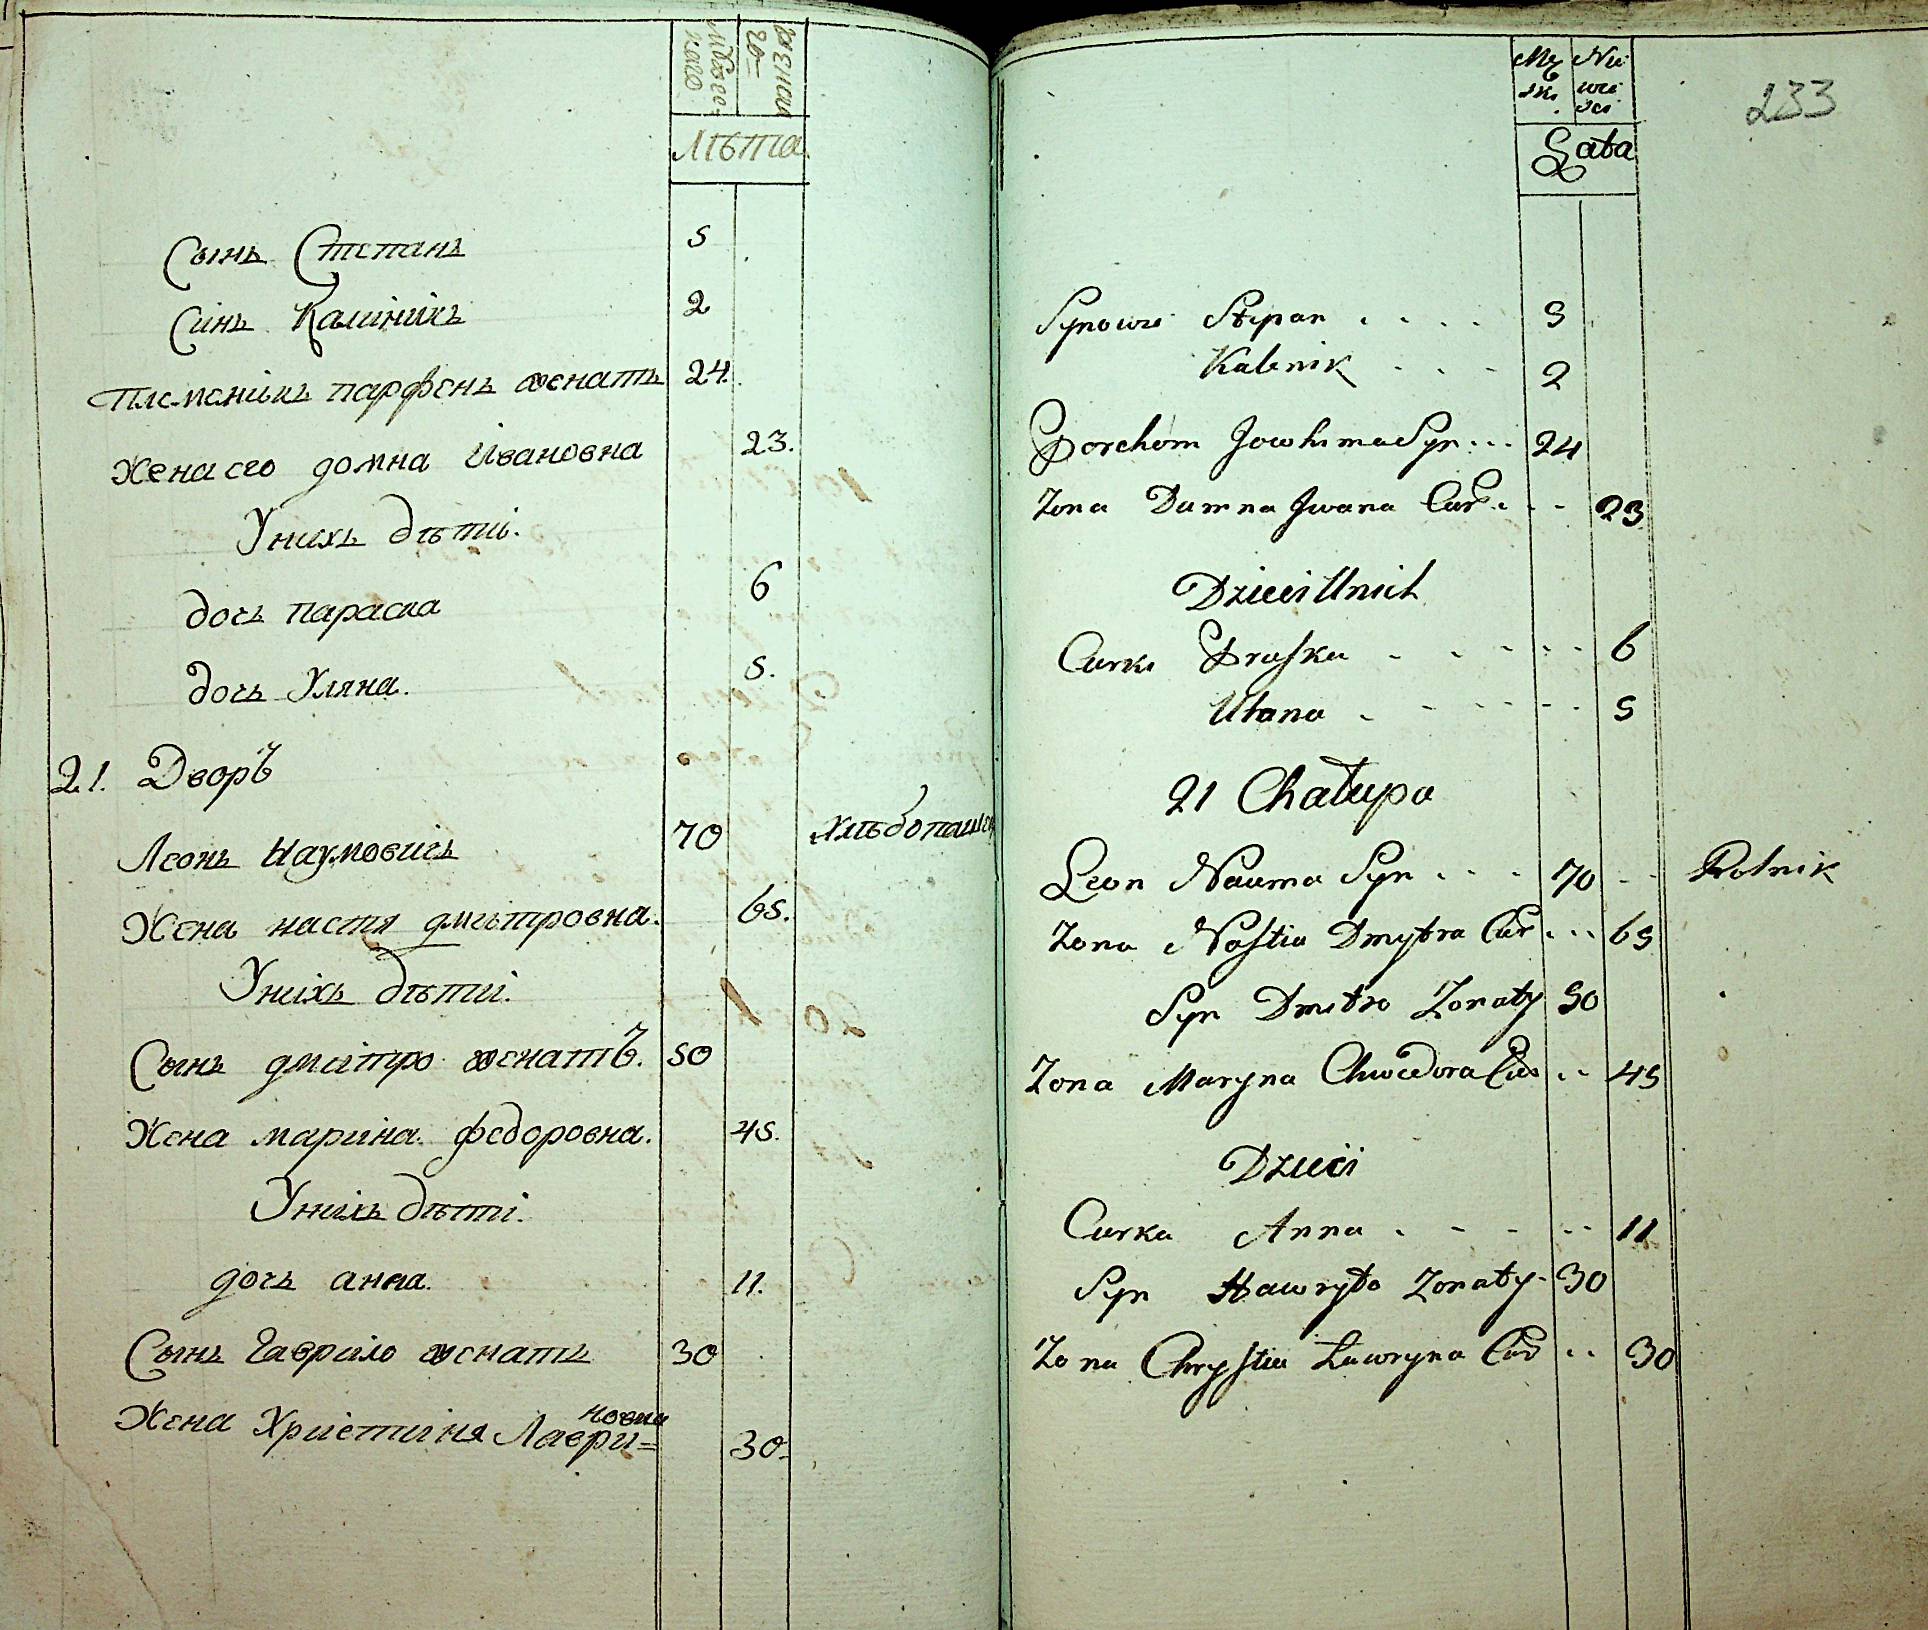 мужеского
женска го=
лѣта
Сынъ Степанъ 5
Синъ Калиникъ 2
племеникъ парфенъ женатъ 24.
Жена его домна Ивановна 23.
Унихъ дѣти.
дочь параска 6
дочь Уляна. 5.
21. Дворъ
Леонъ Наумовичь 70 хлѣбопашец
Жена настя дмитровна. 65.
Унихъ дѣти.
Сынъ дмитро женатъ. 50
Жена марина федоровна. 45.
Унихъ дѣти.
дочь анна. 11.
Сынъ Гаврило женатъ 30
Жена Христиня Лаври=новна 30.
233
Męski
Niewieści
Lata
Synowie Stepan . . . . 5
Kalenik . . . 2
Porchom Jowhima Syn . . . 24
Zona Dumna Jwana Cur . . - 23
Dzieci Unich
Curki Praska . . - - . . 6
Ulana . - - - - . 5
21 Chałupa
Leon Nauma Syn . . . 70 - - Rolnik
Zona Nastia Dmytra Cur . . . 65
Syn Dmitro Zonaty 50
Zona Maryna Chwedora Cur . . 45
Dzieci
Curka Anna . - - - - 11
Syn Hawryło Zonaty - 30
Zona Chrystia Ławryna Cur . . 30